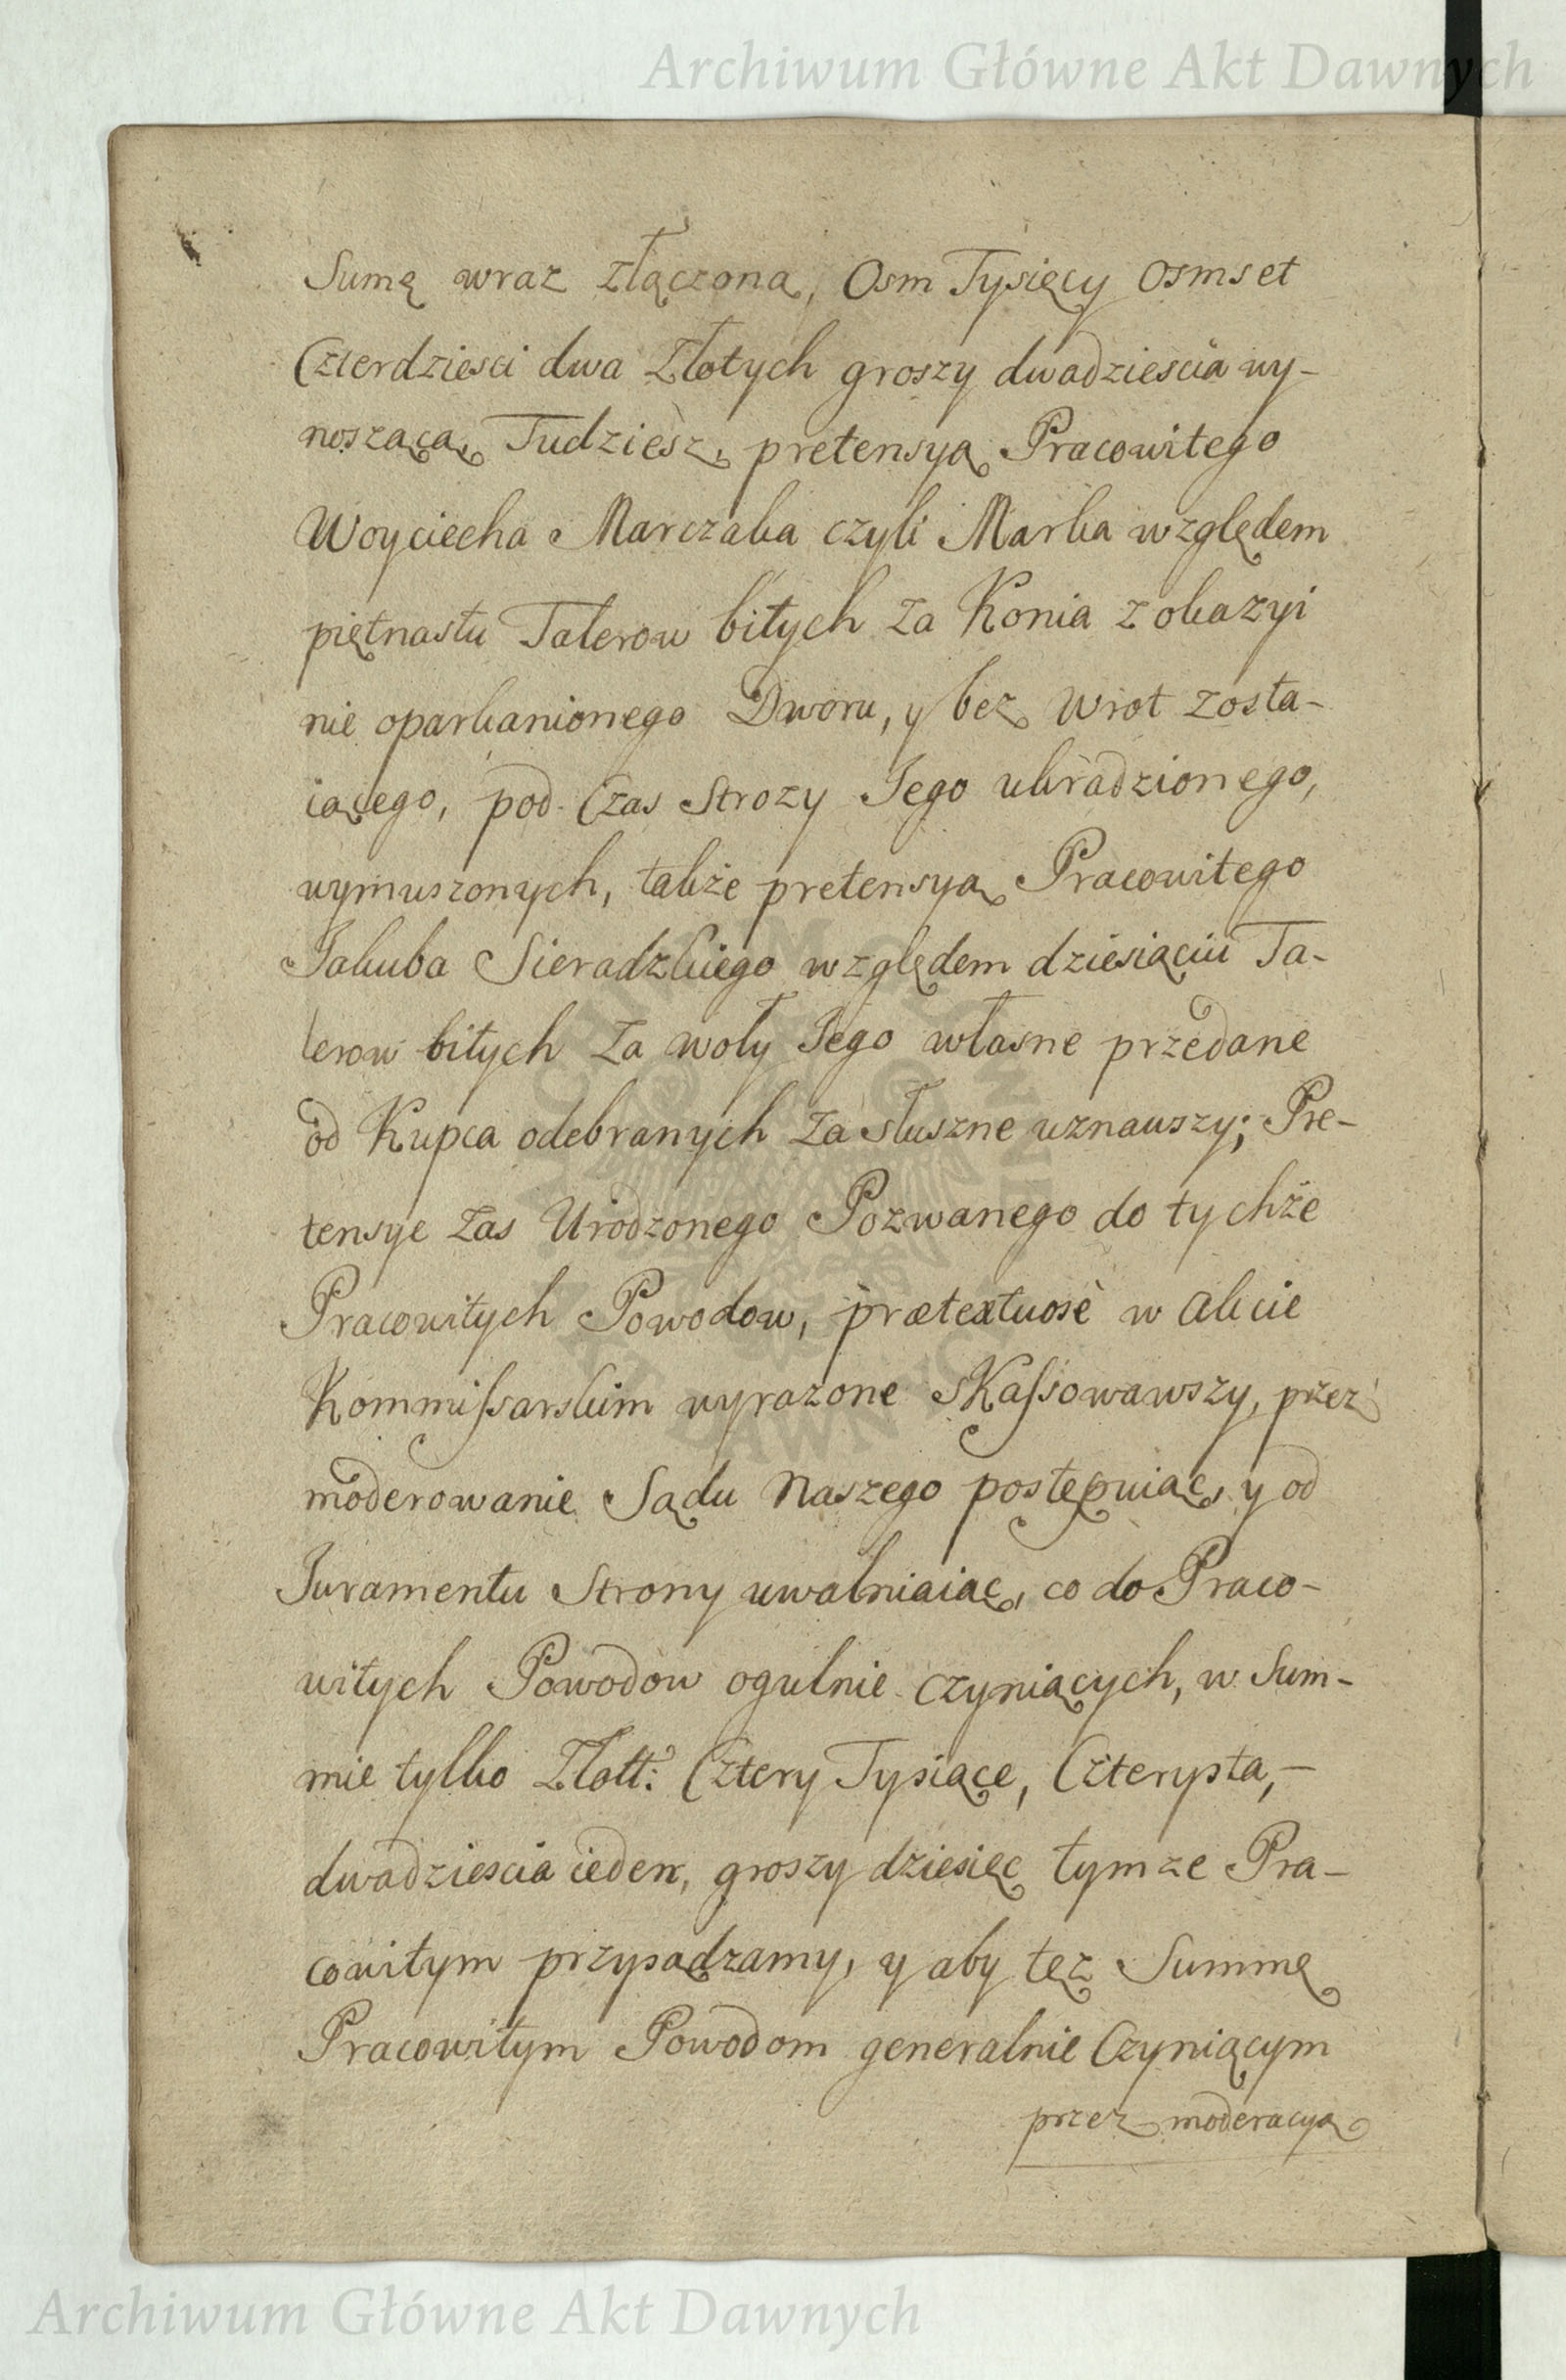 Archiwum Główne Akt Dawnych
Sumę wraz złączoną, Osm Tysięcy osmset
Czterdziesci dwa Złotych groszy dwadziescia wy-
noszącą, Tudziesz, pretensyą Pracowitego
Woyciecha Marczaka czyli Marka względem
piętnastu Talerow bitych za Konia z okazyi
nie oparkanionego Dworu, y bez Wrot zosta-
iącego, pod Czas Strozy Jego ukradzionego,
wymuszonych, także pretensyą Pracowitego
Jakuba Sieradzkiego względem dziesiąciu Ta-
lerow bitych za woły Jego własne przedane
od Kupca odebranych za słuszne uznawszy; Pre-
tensye zas Urodzonego Pozwanego do tychże
Pracowitych Powodow, prætextuosè w akcie
Kommissarskim wyrazone skassowawszy, przez
moderowanie Sądu Naszego postępuiąc, y od
Juramentu Strony uwalniaiąc, co do Praco-
witych Powodow ogulnie czyniących, w Sum-
mie tylko Złott: Cztery Tysiące, Czterysta,-
dwadziescia ieden, groszy dziesięc tymze Pra-
cowitym przysądzamy, y aby tęz Summę
Pracowitym Powodom generalnie Czyniącym
przez moderacyą
Archiwum Główne Akt Dawnych